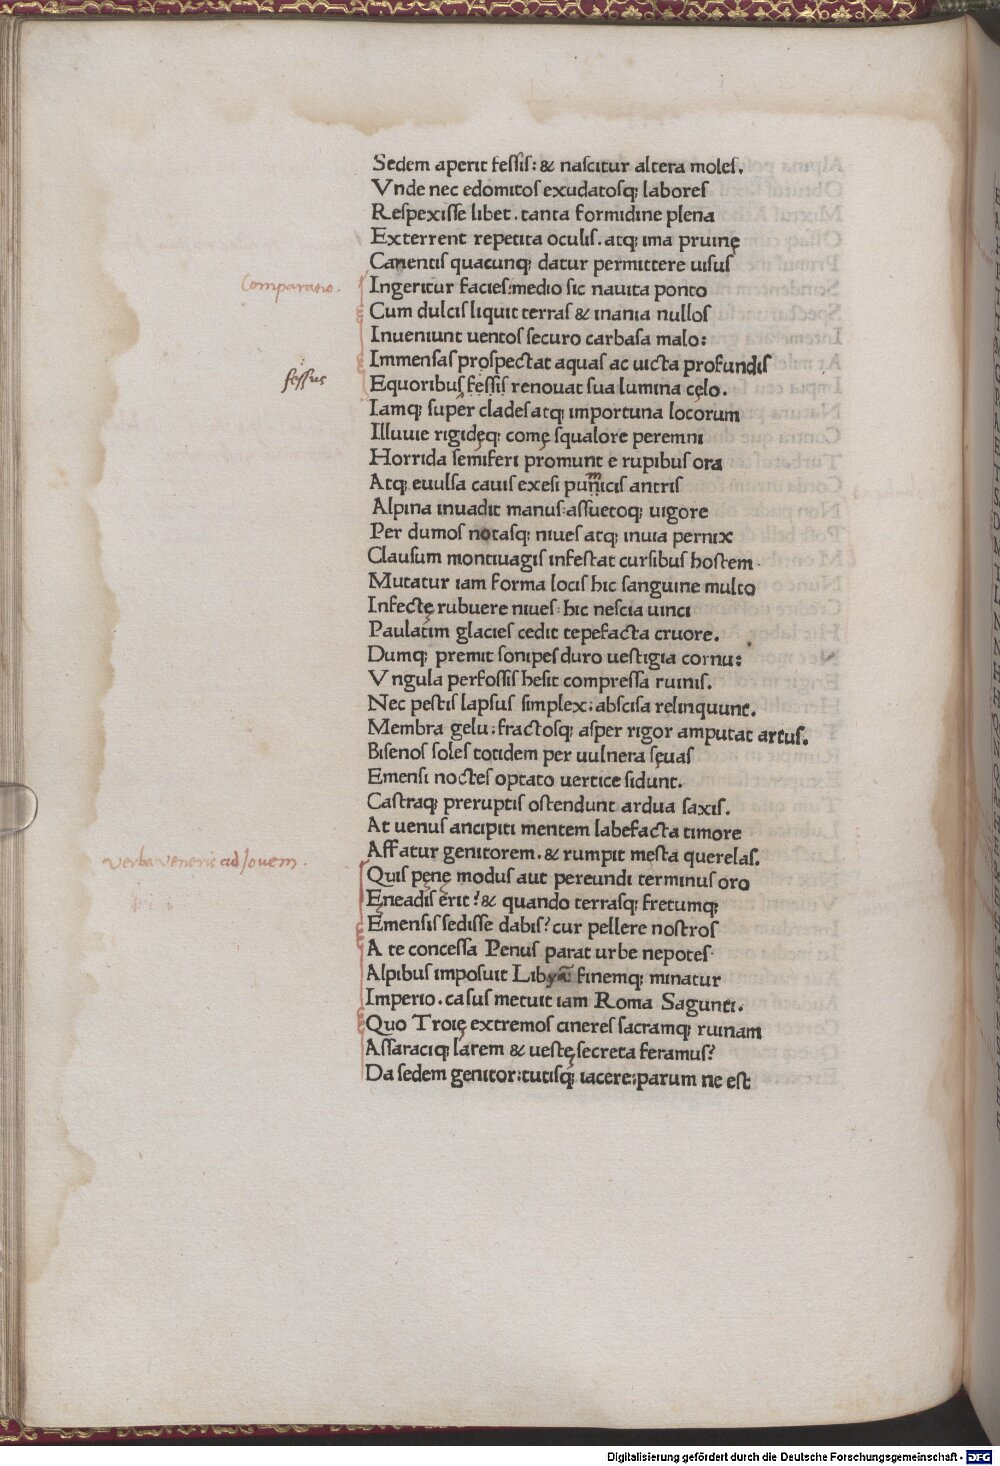 Sedem aperit fessis: & nascitur altera moles.
Vnde nec edomitos exudatosq; labores
Respexisse libet. tanta formidine plena
Exterrent repetita oculis. atq; ima pruinę
Canentis quacunq; datur permittere uisus
Comparatio.
Ingeritur facies: medio sic nauita ponto
Cum dulcis liquit terras & inania nullos
Inueniunt uentos securo carbasa malo:
Immensas prospectat aquas ac uicta profundis
fessus
Equoribus fessis renouat sua lumina cęlo.
Iamq; super clades atq; importuna locorum
Illuuie rigidęq; comę squalore peremni
Horrida semiferi promunt e rupibus ora
Atq; euulsa cauis exesi pumicis antris
Alpina inuadit manus: assuetoq; uigore
Per dumos notasq; niues atq; inuia pernix
Clausum montiuagis infestat cursibus hostem.
Mutatur iam forma locis hic sanguine multo
Infectę rubuere niues: hic nescia uinci
Paulatim glacies cedit tepefacta cruore.
Dumq; premit sonipes duro uestigia cornu:
Vngula perfossis hesit compressa ruinis.
Nec pestis lapsus simplex: abscisa relinquunt.
Membra gelu: fractosq; asper rigor amputat artus.
Bisenos soles totidem per uulnera sęuas
Emensi noctes optato uertice sidunt.
Castraq; preruptis ostendunt ardua saxis.
At uenus ancipiti mentem labefacta timore
Affatur genitorem. & rumpit męsta querelas.
verba veneris ad Jovem.
Quis pęnę modus aut pereundi terminus oro
Eneadis erit? & quando terrasq; fretumq;
Emensis sedisse dabis? cur pellere nostros
A te concessa Penus parat urbe nepotes.
Alpibus imposuit Libyã finemq; minatur
Imperio. casus metuit iam Roma Sagunti.
Quo Troię extremos cineres sacramq; ruinam
Assaraciq; larem & uestę secreta feramus?
Da sedem genitor: tutisq; iacere: parum ne est
Digitalisierung gefördert durch die Deutsche Forschungsgemeinschaft - DFG